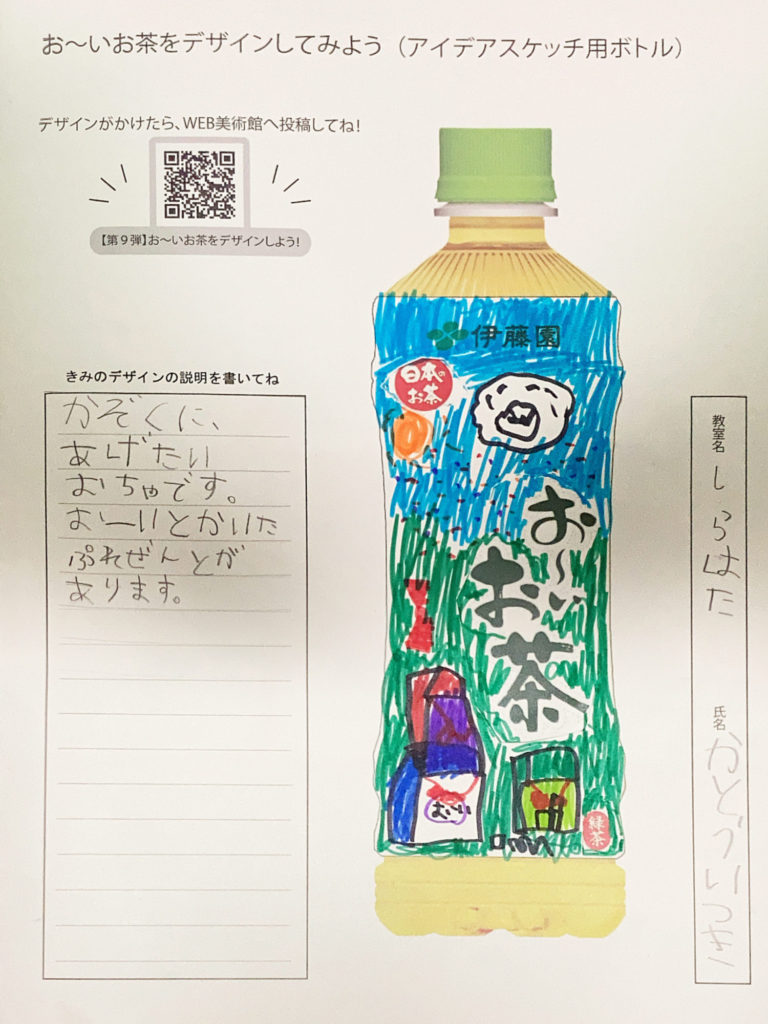 お〜いお茶をデザインしてみよう（アイデアスケッチ用ボトル）
デザインがかけたら、WEB美術館へ投稿してね!
【第９弾】お〜いお茶をデザインしよう!
きみのデザインの説明を書いてね
かぞくに、
あげたい
おちゃです。
おーいとかいた
ぷれぜんとが
あります。
伊藤園
日本の
お茶
お〜い
お茶
おーい
緑茶
教室名
しらはた
氏名
かとういつき